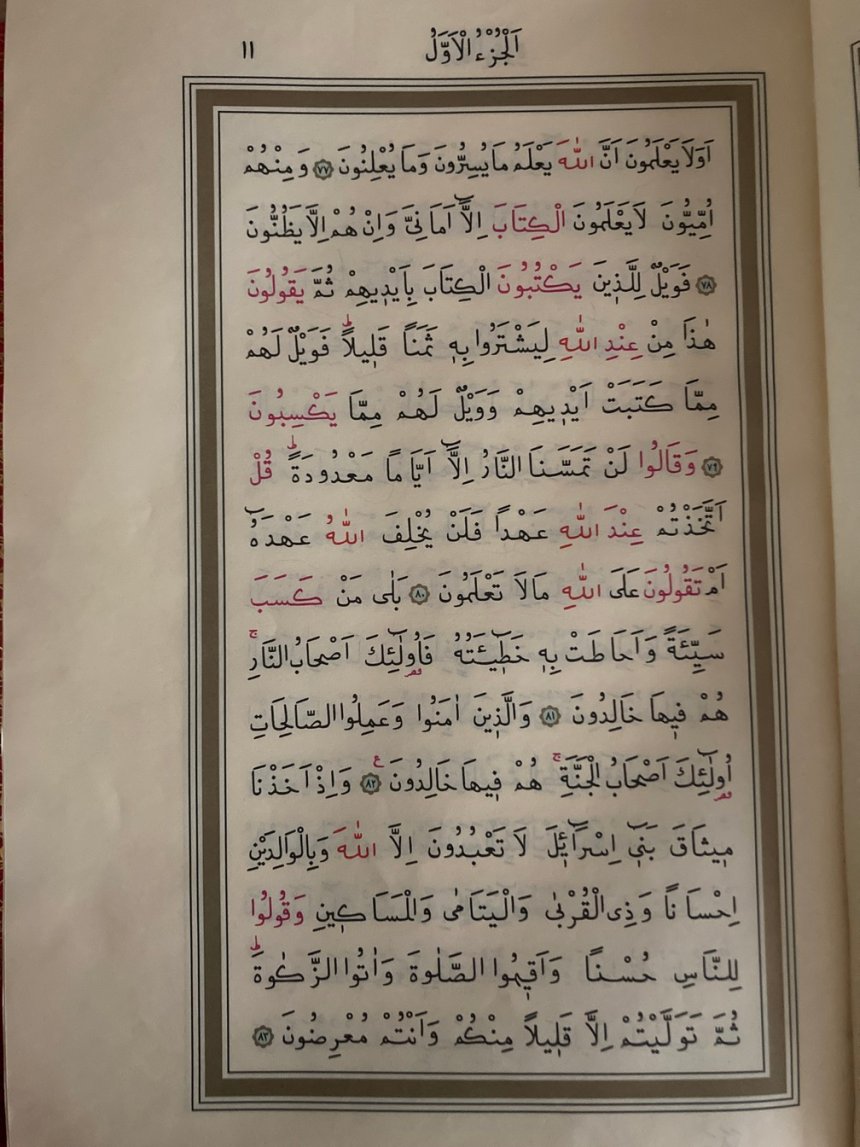 اَلْجُزْءُ الْاَوَّلُ ١١
اَوَلَا يَعْلَمُونَ اَنَّ اللّٰهَ يَعْلَمُ مَا يُسِرُّونَ وَمَا يُعْلِنُونَ ﴿٧٧﴾ وَمِنْهُمْ
اُمِّيُّونَ لَا يَعْلَمُونَ الْكِتَابَ اِلَّٓا اَمَانِيَّ وَاِنْ هُمْ اِلَّا يَظُنُّونَ
﴿٧٨﴾ فَوَيْلٌ لِلَّذ۪ينَ يَكْتُبُونَ الْكِتَابَ بِاَيْد۪يهِمْ ثُمَّ يَقُولُونَ
هٰذَا مِنْ عِنْدِ اللّٰهِ لِيَشْتَرُوا بِه۪ ثَمَنًا قَل۪يلًاۜ فَوَيْلٌ لَهُمْ
مِمَّا كَتَبَتْ اَيْد۪يهِمْ وَوَيْلٌ لَهُمْ مِمَّا يَكْسِبُونَ
﴿٧٩﴾ وَقَالُوا لَنْ تَمَسَّنَا النَّارُ اِلَّٓا اَيَّامًا مَعْدُودَةًۜ قُلْ
اَتَّخَذْتُمْ عِنْدَ اللّٰهِ عَهْدًا فَلَنْ يُخْلِفَ اللّٰهُ عَهْدَهُٓ
اَمْ تَقُولُونَ عَلَى اللّٰهِ مَا لَا تَعْلَمُونَ ﴿٨٠﴾ بَلٰى مَنْ كَسَبَ
سَيِّئَةً وَاَحَاطَتْ بِه۪ خَط۪ٓيـَٔتُهُ فَاُو۬لٰٓئِكَ اَصْحَابُ النَّارِۚ
هُمْ ف۪يهَا خَالِدُونَ ﴿٨١﴾ وَالَّذ۪ينَ اٰمَنُوا وَعَمِلُوا الصَّالِحَاتِ
اُو۬لٰٓئِكَ اَصْحَابُ الْجَنَّةِۚ هُمْ ف۪يهَا خَالِدُونَ ع ﴿٨٢﴾ وَاِذْ اَخَذْنَا
م۪يثَاقَ بَن۪ٓي اِسْرَٓائ۪لَ لَا تَعْبُدُونَ اِلَّا اللّٰهَ وَبِالْوَالِدَيْنِ
اِحْسَانًا وَذِي الْقُرْبٰى وَالْيَتَامٰى وَالْمَسَاك۪ينِ وَقُولُوا
لِلنَّاسِ حُسْنًا وَاَق۪يمُوا الصَّلٰوةَ وَاٰتُوا الزَّكٰوةَۜ
ثُمَّ تَوَلَّيْتُمْ اِلَّا قَل۪يلًا مِنْكُمْ وَاَنْتُمْ مُعْرِضُونَ ﴿٨٣﴾